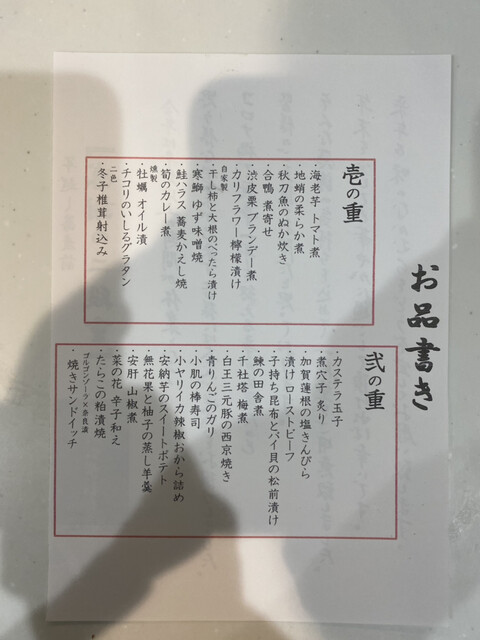 お品書き
壱の重
・海老芋 トマト煮
・地蛸の柔らか煮
・秋刀魚のぬか炊き
・合鴨 煮寄せ
・渋皮栗 ブランデー煮
・カリフラワー檸檬漬け
自家製
・干し柿と大根のべったら漬け
・寒鰤 ゆず味噌焼
・鮭ハラス 蕎麦かえし焼
・筍のカレー煮
燻製
・牡蠣 オイル漬
・チコリのいしるグラタン
二色
・冬子椎茸射込み
弐の重
・カステラ玉子
・煮穴子 炙り
・加賀蓮根の塩きんぴら
・漬け ローストビーフ
・子持ち昆布とバイ貝の松前漬け
・鰊の田舎煮
・千社塔 梅煮
・白王三元豚の西京焼き
・青りんごのガリ
・小肌の棒寿司
・小ヤリイカ辣椒おから詰め
・安納芋のスイートポテト
・無花果と柚子の蒸し羊羹
・安肝 山椒煮
・菜の花 辛子和え
・たらこの粕漬焼
ゴルゴンゾーラ×奈良漬
・焼きサンドイッチ